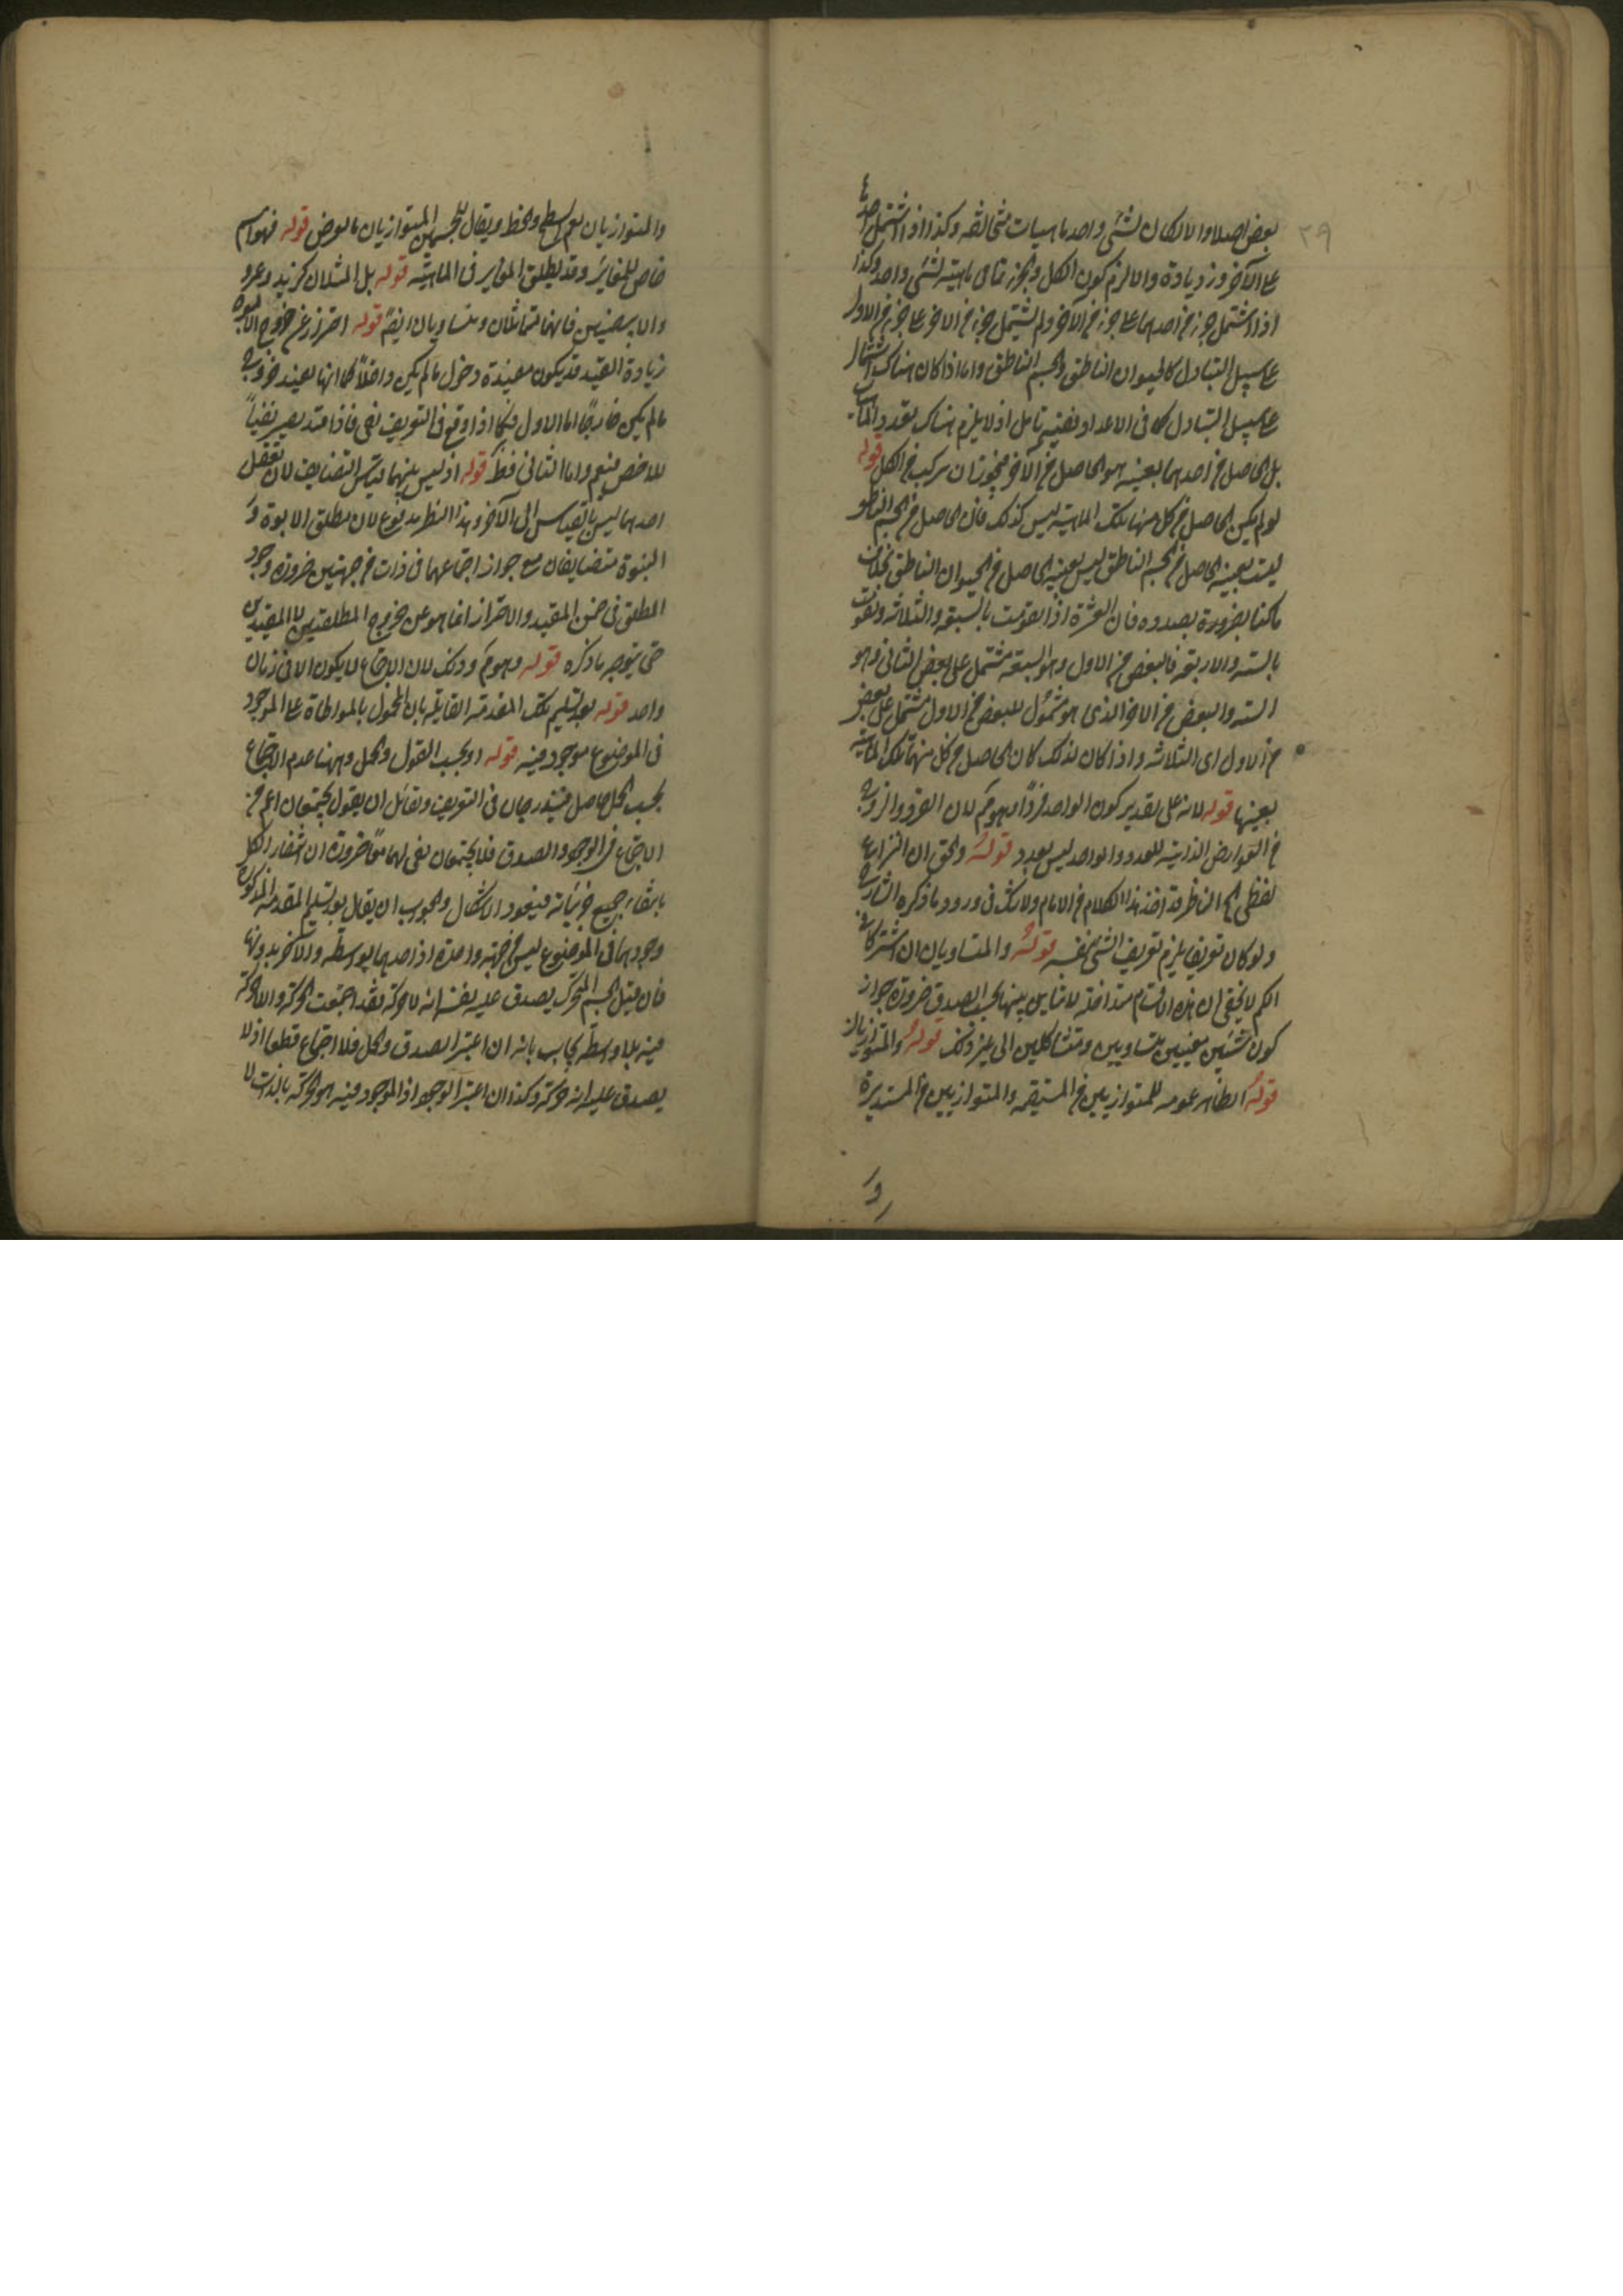 ٣٩
بعض اصلا والا لكان لشئ واحد ماهيات متخالفة وكذا اذا اشتمل احدهما
على الآخر وزيادة والا لزم كون الكل والجزء تمامى ماهية لشئ واحد وكذا
اذا اشتمل جزء من احدهما على جزء من الآخر ولم يشتمل جزء من الآخر على جزء من الاول
على سبيل التبادل كالحيوان الناطق والجسم الناطق واما اذا كان هناك اشتمال
على سبيل التبادل كما فى الاعداد ففيه تامل اذ لا يلزم هناك تعدد الماهيات
بل الحاصل من احدهما بعينه هو الحاصل من الآخر فيجوز ان يتركب من الكل قوله
لو لم يكن الحاصل من كل منهما تلك الماهية ليس كذلك فان الحاصل من الجسم الناطق
ليست بعينه الحاصل من الجسم الناطق ليس بعينه الحاصل من الحيوان الناطق بخلاف
ما كنا بصدده فان العشرة اذا تقومت بالسبعة والثلاثة وتقومت
بالستة والاربعة فالبعض من الاول وهو السبعة مشتمل على بعض الثانى وهو
الستة والبعض من الآخر الذى هو مشمول للبعض من الاول مشتمل على بعض
من الاول اى الثلاثة واذا كان كذلك كان الحاصل من كل منهما تلك الماهية
بعينها قوله لانه على تقدير كون الواحد فردا وهو كم لان الفرد والزوج
من العوارض الذاتية للعدد والواحد ليس بعدد قوله والحق ان النزاع
لفظى الناظر قد اخذ هذا الكلام من الامام ولا شك فى ورود ما ذكره الشارح
ولو كان تعريفا يلزم تعريف الشئ بنفسه قوله والمتساويان ان اشتركا فى
الكم لا يخفى ان هذه الاقسام متداخلة لا تباين بينها بحسب الصدق ضرورة جواز
كون شيئين معينين متساويين ومتشاكلين الى غير ذلك قوله والمتوازيان
قوله الظاهر عمومه للمتوازيين من المستقيمة والمتوازيين من المستديرة
و
والمتوازيان يعم السطح والخط ويقال للجسمين المتوازيان بالعرض قوله فهو اسم
خاص للتغاير وقد يطلق المغاير فى الماهية قوله بل المثلان كزيد وعمرو
والابيضين فانهما متماثلان ومتساويان ايضا قوله احتراز عن خروج الابوة
زيادة القيد قد يكون مفيدة دخول ما لم يكن داخلا كما انها تفيد خروج
ما لم يكن خارجا اما الاول فكما اذا وقع فى التعريف نفى فاذا قيد يصير نفيا
للاخص فيعم واما الثانى فظ قوله اذ ليس بينهما قياس التضايف لان تعقل
احدهما ليس بالقياس الى الآخر وهذا النظر مدفوع لان مطلق الابوة و
البنوة متضايفان مع جواز اجتماعهما فى ذات من جهتين ضرورة وجود
المطلق فى ضمن المقيد والاحتراز انما هو عن خروج المطلقتين لا المقيدين
حتى يتوجه ما ذكره قوله وهو كم وذلك لان الاجتماع لا يكون الا فى زمان
واحد قوله بعد تسليم تلك المقدمة القائلة بان المحمول بالمواطاة على الموجود
فى الموضوع موجود فيه قوله او بحسب القول والحمل وههنا عدم الاجتماع
بحسب الحمل حاصل فيندرجان فى التعريف ولقائل ان يقول يجتمعان اعم من
الاجتماع فى الوجود والصدق فلا يجتمعان نفى لهما معا ضرورة ان انتفاء الكلى
بانتفاء جميع جزئياته فيعود الاشكال والجواب ان يقال بعد تسليم المقدمة المذكورة
وجودهما فى الموضوع ليس من جهة واحدة اذ احدهما بواسطة والآخر بدونها
فان قيل الجسم المتحرك يصدق عليه نفسه انه لا حركة فقد اجتمعت الحركة واللاحركة
فيه بلا واسطة يجاب بانه ان اعتبر الصدق والحمل فلا اجتماع قطعا اذ لا
يصدق عليه انه حركة وكذا ان اعتبر الوجود اذ الموجود فيه هو الحركة بالذات لا